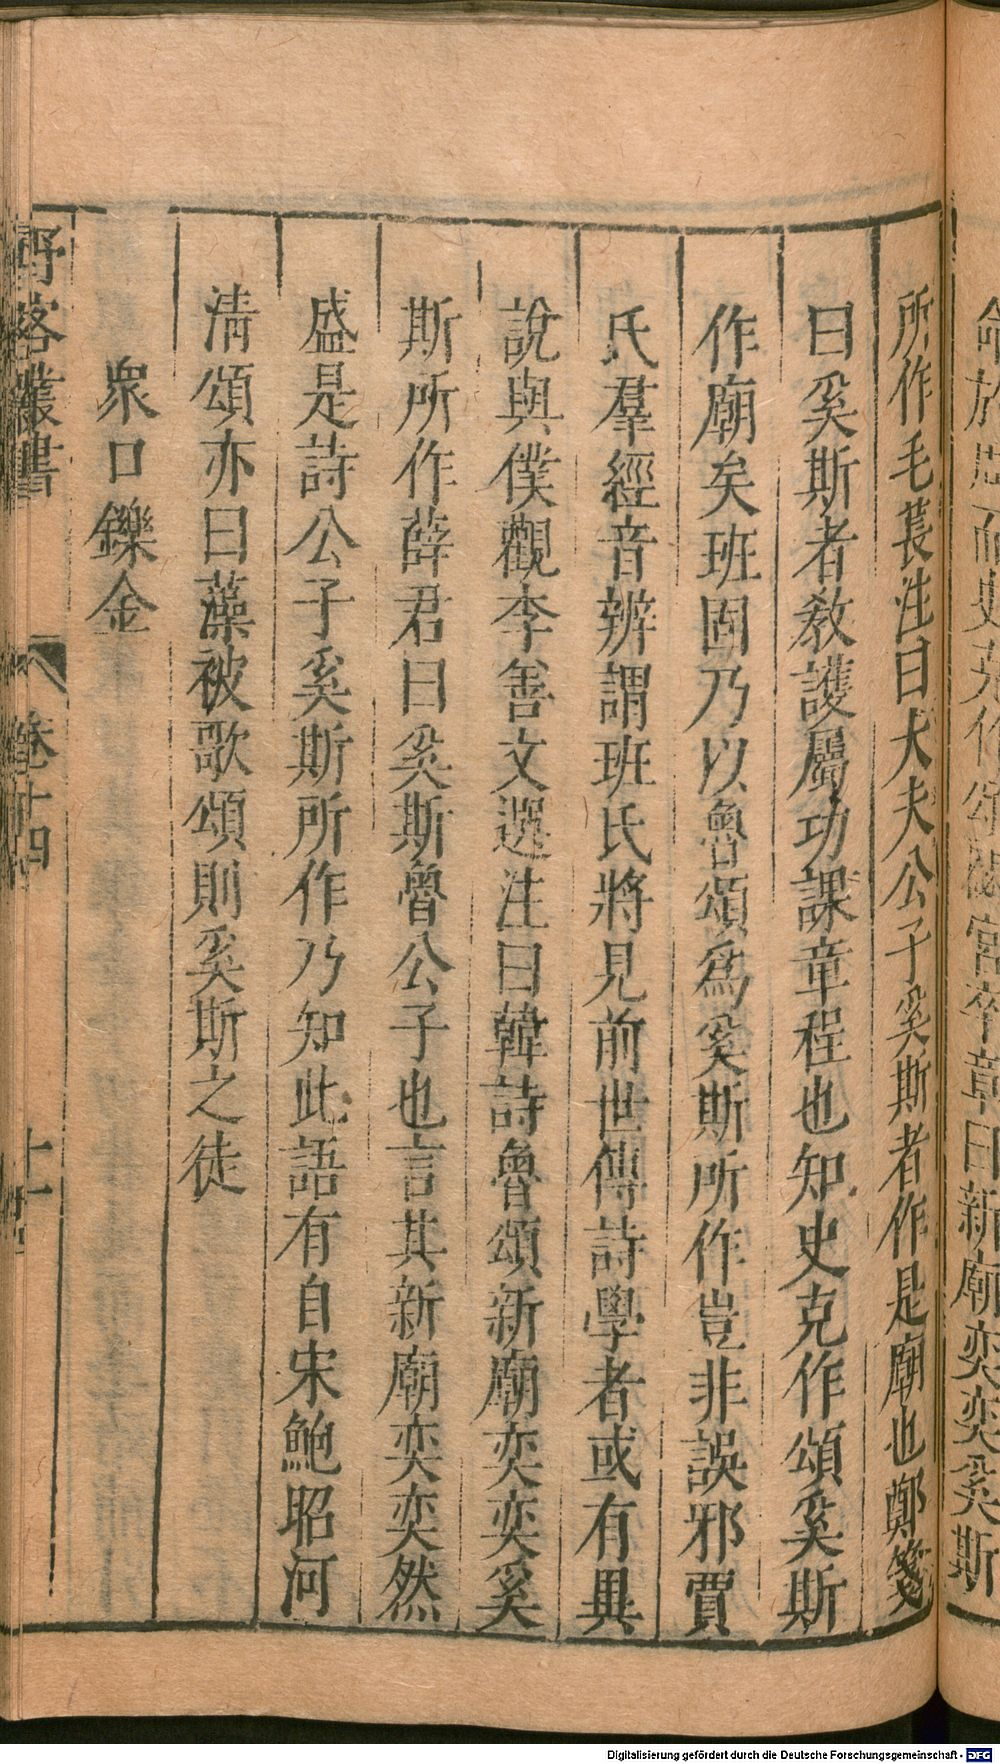 命於周而史克作頌閟宮卒章曰新廟奕奕奚斯
所作毛萇注曰大夫公子奚斯者作是廟也鄭箋
曰奚斯者教護屬功課章程也知史克作頌奚斯
作廟矣班固乃以魯頌爲奚斯所作豈非誤邪賈
氏羣經音辨謂班氏將見前世傳詩學者或有異
說與僕觀李善文選注曰韓詩魯頌新廟奕奕奚
斯所作薛君曰奚斯魯公子也言其新廟奕奕然
盛是詩公子奚斯所作乃知此語有自宋鮑昭河
清頌亦曰藻被歌頌則奚斯之徒
衆口鑠金
野客叢書 卷十四 十一
Digitalisierung gefördert durch die Deutsche Forschungsgemeinschaft - DFG